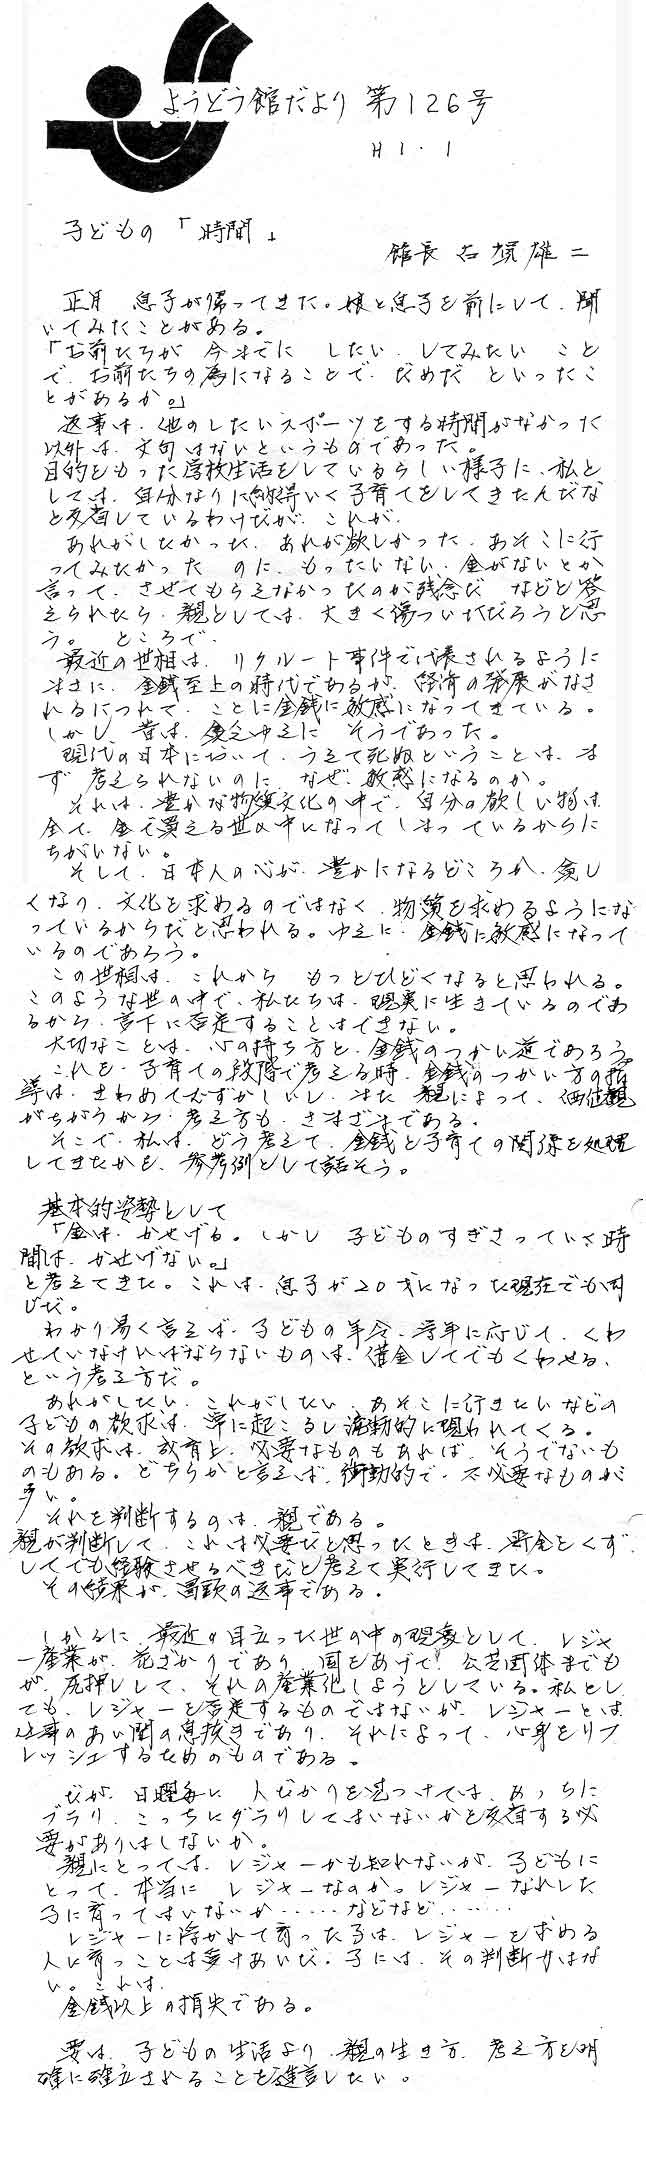 ようどう館だより 第126号
H1・1
子どもの「時間」
館長 石塚雄二
正月 息子が帰ってきた。娘と息子を前にして、聞
いてみたことがある。
「お前たちが 今までに したい、してみたい こと
で、お前たちの為になることで、だめだ といったこ
とがあるか。」
返事は、他のしたいスポーツをする時間がなかった
以外は、文句はないというものであった。
目的をもった学校生活をしているらしい様子に、私と
しては、自分なりに納得いく子育てをしてきたんだな
と反省しているわけだが、これが、
あれがしたかった、あれが欲しかった、あそこに行
ってみたかった のに、もったいない、金がないとか
言って、させてもらえなかったのが残念だ などと答
えられたら、親としては、大きく傷ついただろうと思
う。 ところで、
最近の世相は、リクルート事件で代表されるように
まさに、金銭至上の時代であるが、経済の発展がなさ
れるにつれて、ことに金銭に敏感になってきている。
しかし、昔は、貧乏ゆえに そうであった。
現代の日本において、うえて死ぬということは、ま
ず 考えられないのに なぜ、敏感になるのか。
それは、豊かな物質文化の中で、自分の欲しい物は
全て、金で買える世の中になってしまっているからに
ちがいない。
そして、日本人の心が、豊かになるどころか、貧し
くなり、文化を求めるのではなく、物質を求めるようにな
っているからだと思われる。ゆえに、金銭に敏感になって
いるのであろう。
この世相は、これから もっとひどくなると思われる。
このような世の中で、私たちは、現実に生きているのであ
るから、言下に否定することはできない。
大切なことは、心の持ち方と、金銭のつかい道であろう。
これを、子育ての段階で考える時、金銭のつかい方の指
導は、きわめてむずかしいし、また 親によって、価値観
がちがうから、考え方も、さまざまである。
そこで、私は、どう考えて、金銭と子育ての関係を処理
してきたかを、参考例として話そう。
基本的姿勢として
「金は、かせげる。しかし 子どものすぎさっていく時
間は、かせげない。」
と考えてきた。これは、息子が20才になった現在でも同
じだ。
わかり易く言えば、子どもの年令、学年に応じて、くわ
せていなければならないものは、借金してでもくわせる、
という考え方だ。
あれがしたい、これがしたい、あそこに行きたいなどの
子どもの欲求は、常に起こるし流動的に現われてくる。
その欲求は、教育上、必要なものもあれば、そうでないも
のもある。どちらかと言えば、衝動的で、不必要なものが
多い。
それを判断するのは、親である。
親が判断して、これは必要だと思ったときは、貯金をくず
してでも経験させるべきだと考えて実行してきた。
その結果が、冒頭の返事である。
しかるに、最近の目立った世の中の現象として、レジャ
ー産業が、花ざかりであり、国をあげて、公共団体までも
が、尻押しして、それの産業化しようとしている。私とし
ても、レジャーを否定するものではないが、レジャーとは
仕事のあい間の息抜きであり、それによって、心身をリフ
レッシュするためのものである。
だが、日曜毎に 人だかりを見つけては、あっちに
ブラリ、こっちにダラリしてはいないかと反省する必
要がありはしないか。
親にとっては、レジャーかも知れないが、子どもに
とって、本当に レジャーなのか。レジャーなれした
子に育ってはいないか……などなど……
レジャーに浮かれて育った子は、レジャーを求める
人に育つことは受けあいだ。子には、その判断力はな
い。これは、
金銭以上の損失である。
要は、子どもの生活より、親の生き方、考え方を明
確に確立されることを進言したい。